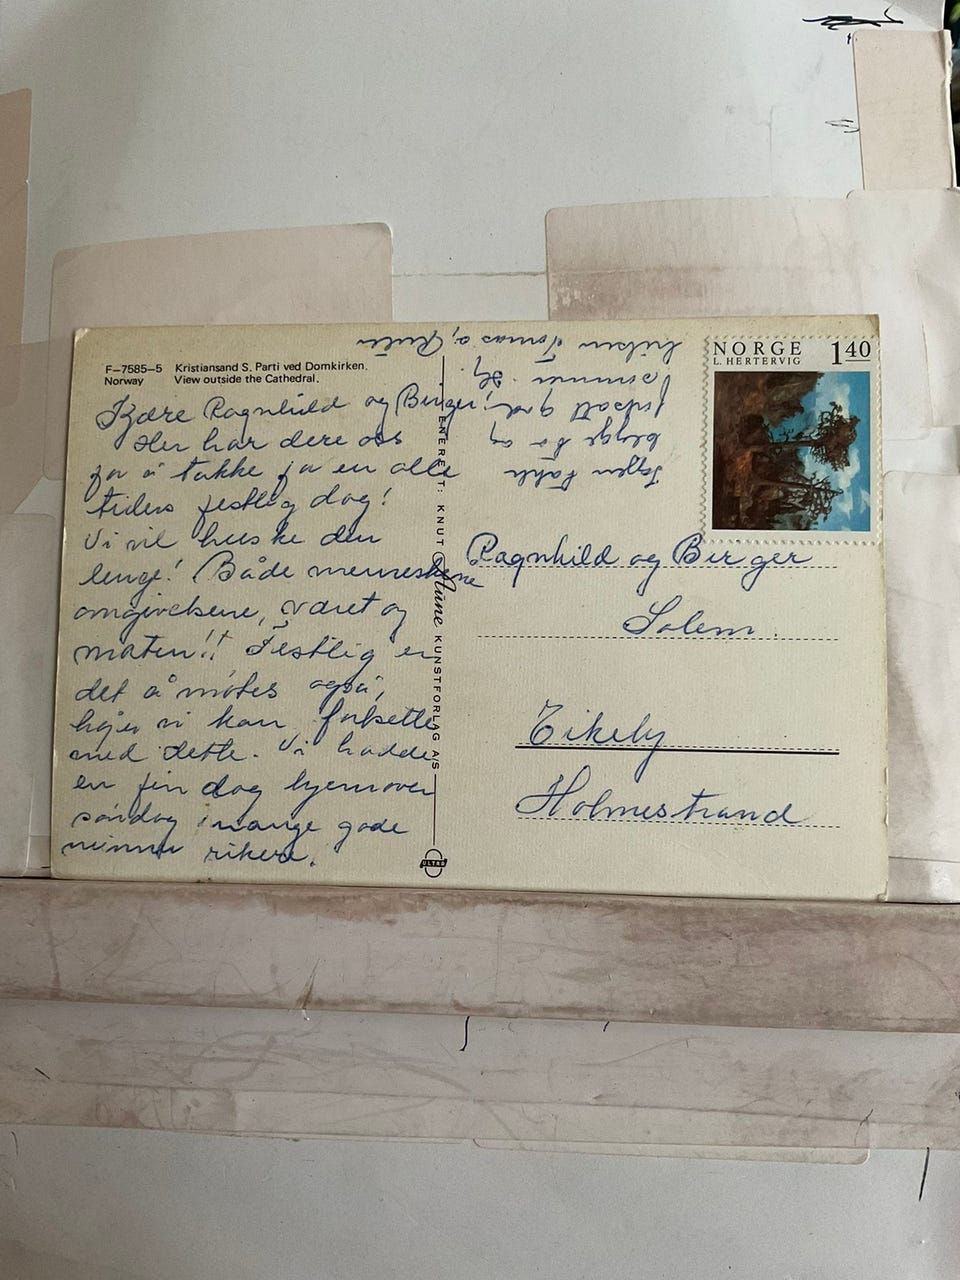 F–7585–5 Kristiansand S. Parti ved Domkirken.
Norway View outside the Cathedral.
NORGE 1 40
L. HERTERVIG
Kjære Ragnhild og Birger,
Her har dere oss
for å takke for en alle
tiders festlig dag!
Vi vil huske den
lenge! Både menneskene
omgivelsene, været og
maten!! Festlig er
det å møtes også,
håper vi kan fortsette
med dette. Vi hadde
en fin dag hjemover
søndag mange gode
minner rikere.
begge to og
fortsatt god
sommer. Hj.
hilsen Tomas o,
Ragnhild og Birger
Solem.
Eikely
Holmestrand
ENERETT: KNUT Aune KUNSTFORLAG A/S
ULTRA